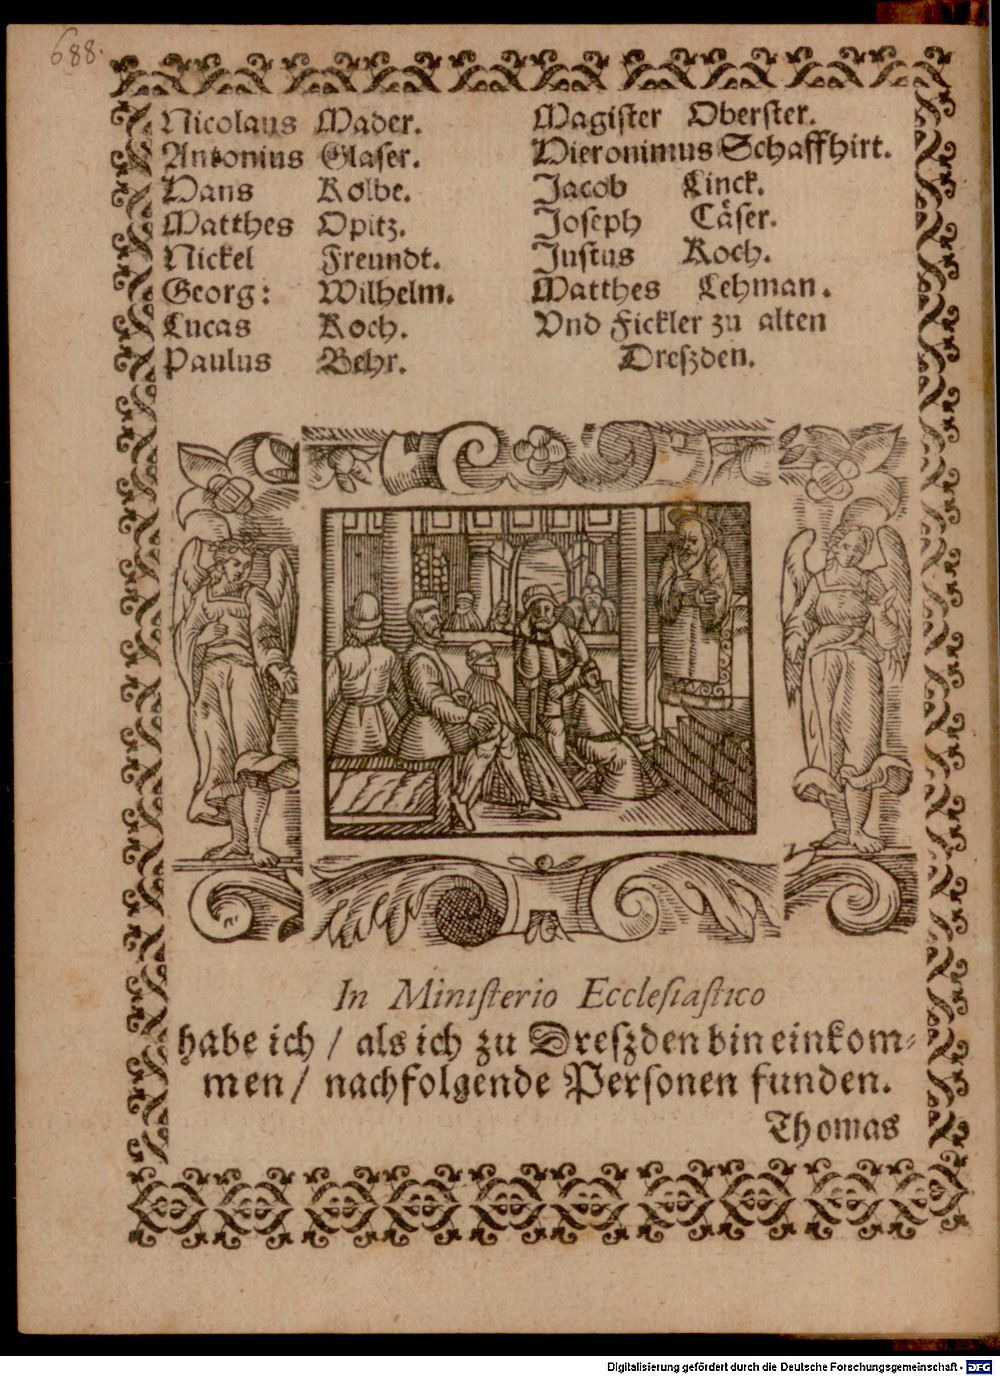 688.
Nicolaus Mader.
Antonius Glaser.
Hans Kolbe.
Matthes Opitz.
Nickel Freundt.
Georg: Wilhelm.
Lucas Koch.
Paulus Behr.
Magiſter Oberſter.
Hieronimus Schaffhirt.
Jacob Linck.
Joſeph Cåſer.
Juſtus Koch.
Matthes Lehman.
Vnd Fickler zu alten
Dreſzden.
In Miniſterio Eccleſiaſtico
habe ich / als ich zu Dreſzden bin einkom⸗
men / nachfolgende Perſonen funden.
Thomas
Digitalisierung gefördert durch die Deutsche Forschungsgemeinschaft - DFG